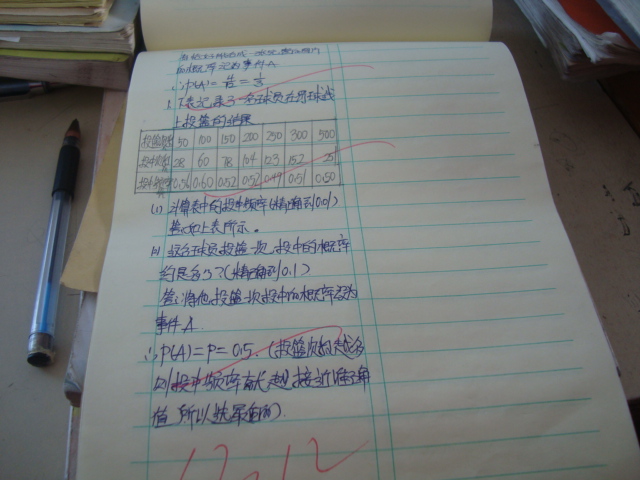 的概率记为事件A
∴P(A)=
1.下表记录了一名球员在罚球线
上投篮的结果
投篮次数 50 100 150 200 250 300 500
投中次数 28 60 78 104 123 152 251
投中频率 0.56 0.60 0.52 0.52 0.49 0.51 0.50
(1) 计算表中的投中频率(精确到0.01)
答:如上表所示。
(2) 这名球员投篮一次,投中的概率
约是多少?(精确到0.1)
答:将他投篮一次投中的概率设为
事件A
∴P(A)=P=0.5.(投篮次数越多
则投中频率就越接近准确
值,所以